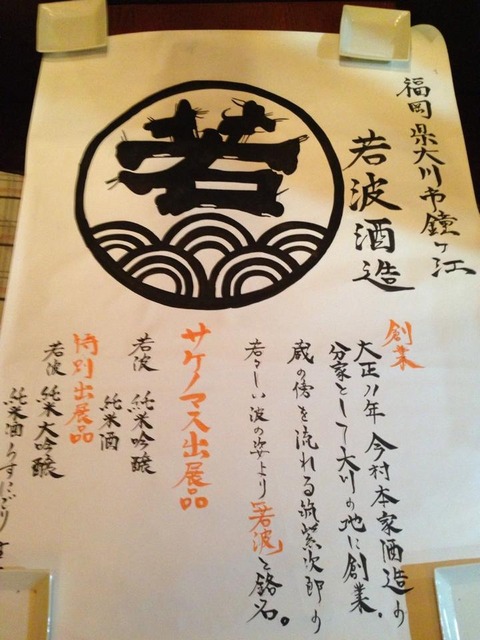 福岡県大川市鐘ヶ江
若波酒造
若
創業
大正11年 今村本家酒造の
分家として大川の地に創業。
蔵の傍を流れる筑紫次郎の
若々しい波の姿より「若波」と銘名。
サケノマス出展品
若波 純米吟醸
純米酒
特別出展品
若波 純米大吟醸
純米酒うすにごり